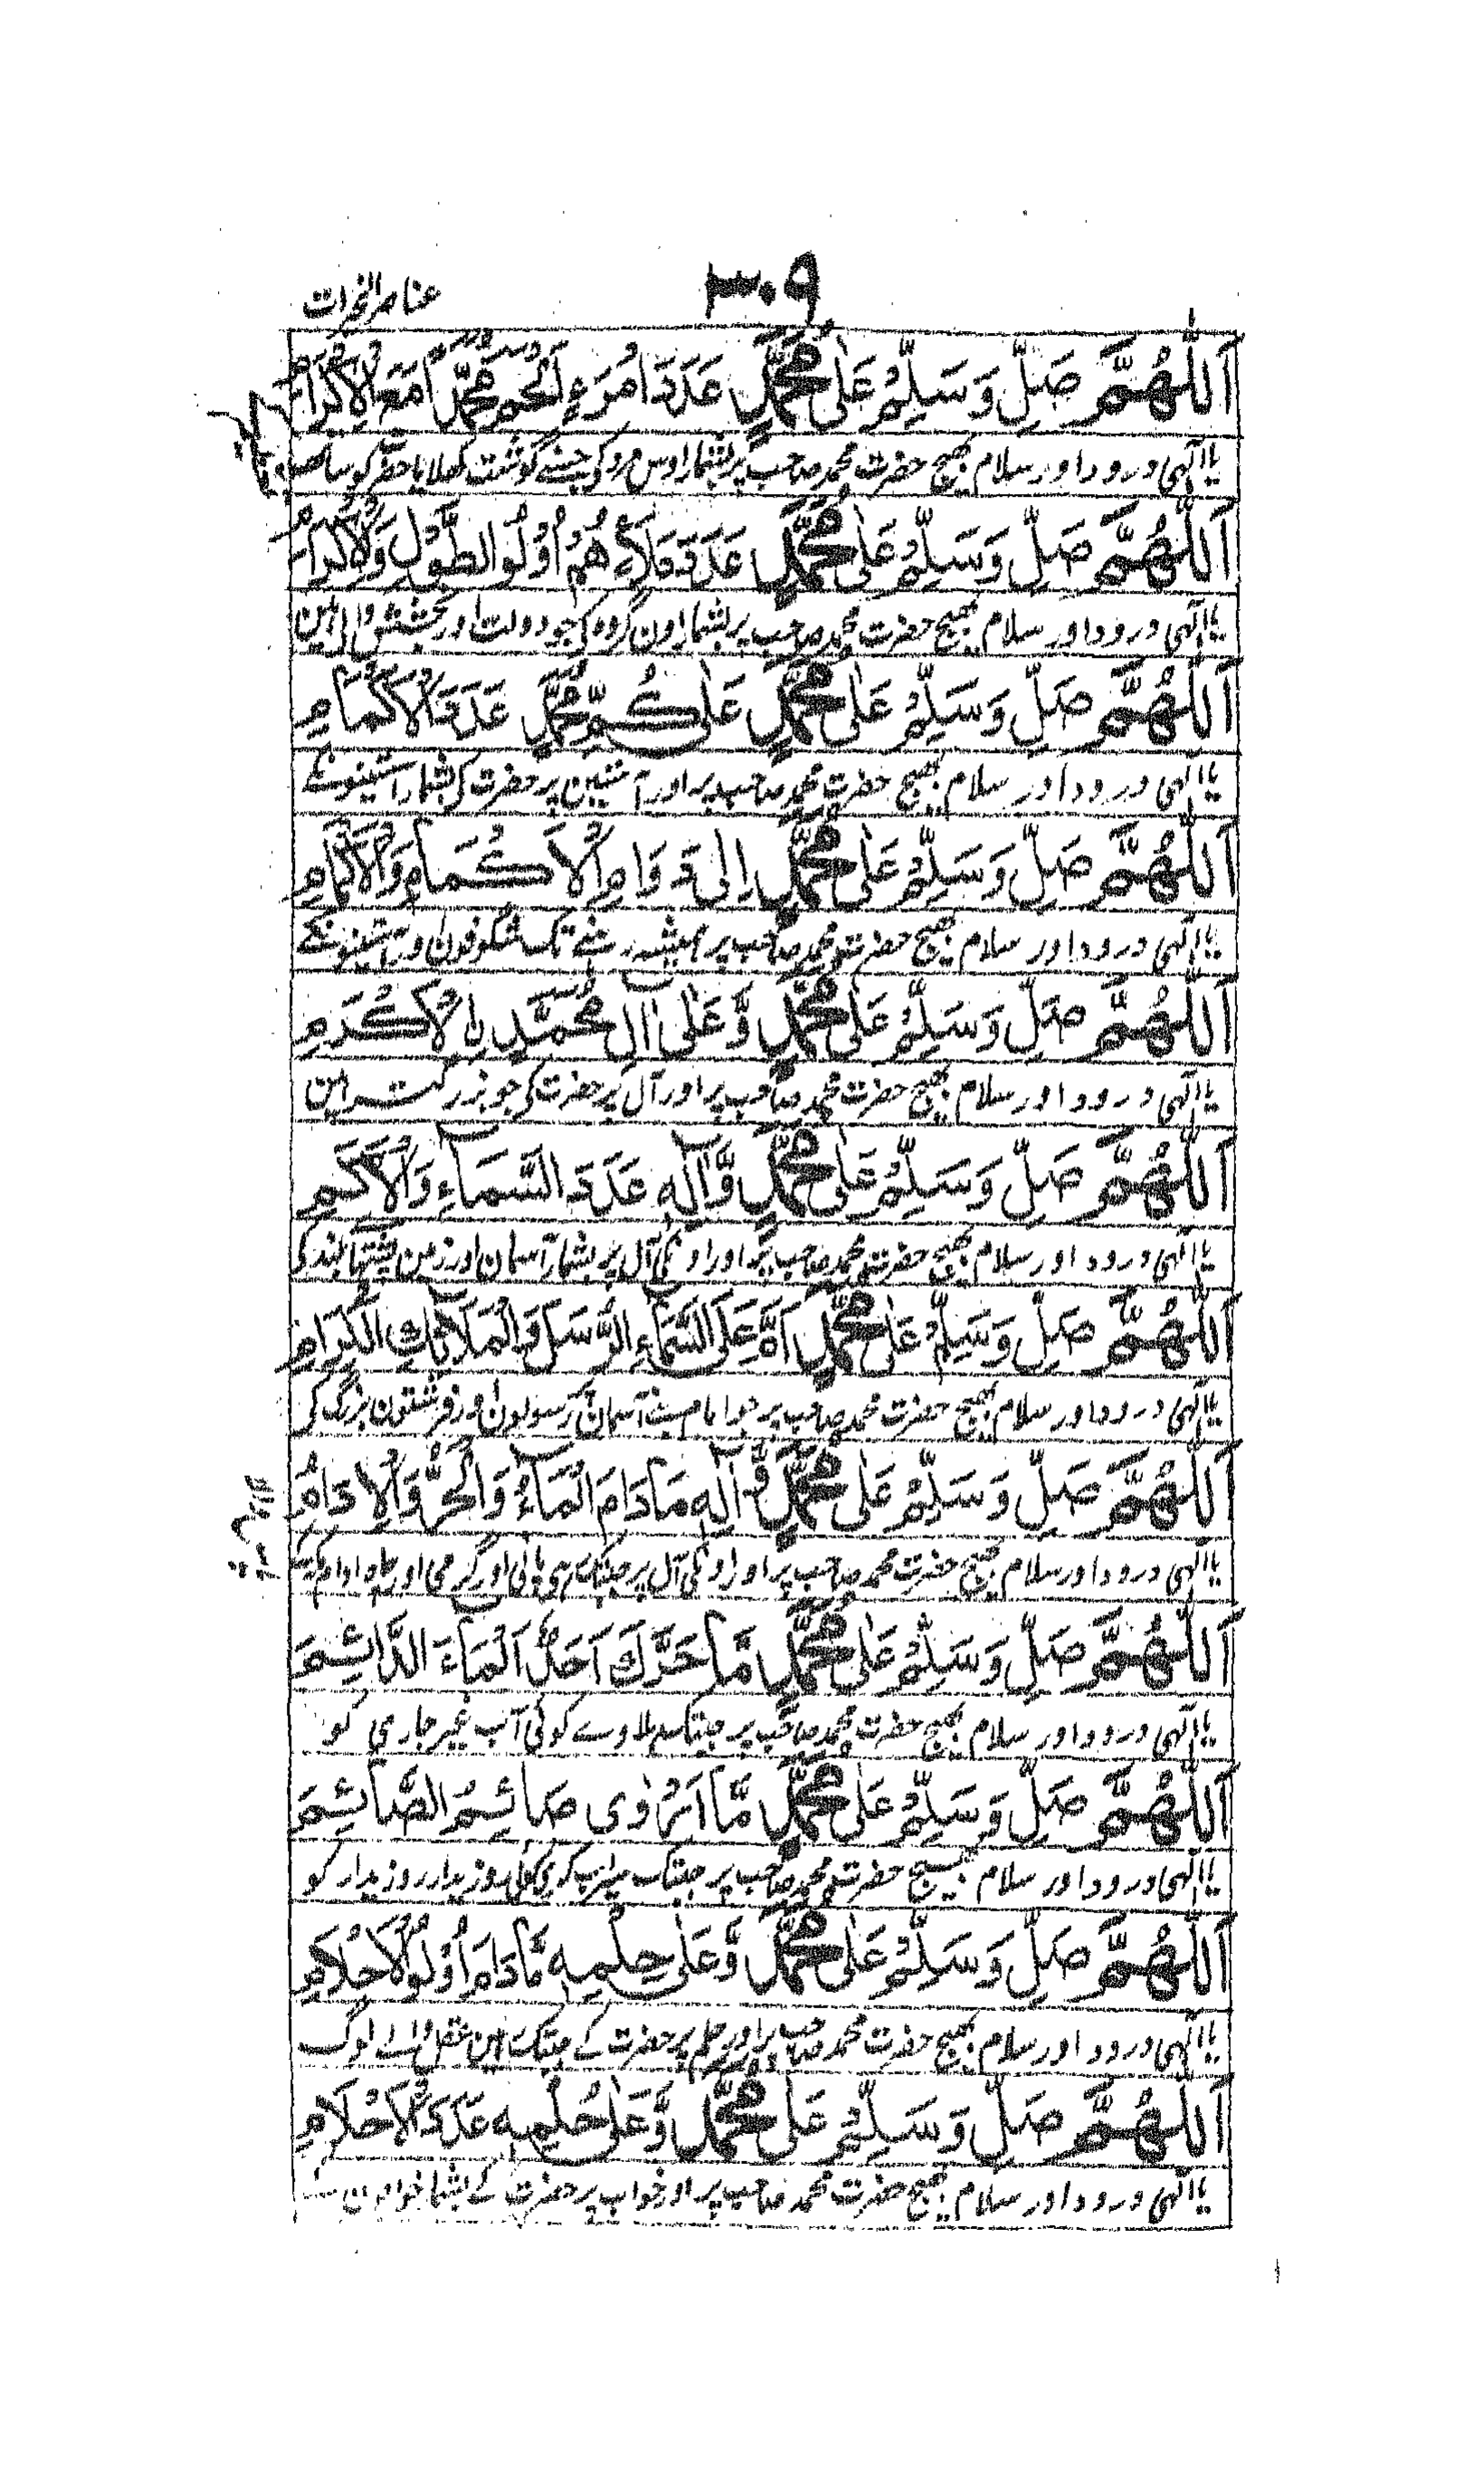 ۳۰۹
عناصر الخیرات
اَللّٰهُمَّ صَلِّ وَسَلِّمْ عَلٰى مُحَمَّدٍ عَدَدَ امْرَءٍ اَلْحَمَ مُحَمَّدًا مَعَ الْاِكْرَامِ
یا الٰہی درود اور سلام بھیج حضرت محمد صاحب پر بشمار اوس مرد کی جسنے گوشت کھلایا حضرت کو ساتھ
اَللّٰهُمَّ صَلِّ وَسَلِّمْ عَلٰى مُحَمَّدٍ عَدَدَ مَلَاءٍ هُمْ اُوْلُو الطَّوْلِ وَالْاِكْرَامِ
یا الٰہی درود اور سلام بھیج حضرت محمد صاحب پر بشمار اون گروہ کی جو دولت اور بخشش والی ہین
اَللّٰهُمَّ صَلِّ وَسَلِّمْ عَلٰى مُحَمَّدٍ عَلٰى كُمِّ مُحَمَّدٍ عَدَدَ الْاَكْمَامِ
یا الٰہی درود اور سلام بھیج حضرت محمد صاحب پر اور آستین پر حضرت کی بشمار آستینونکے
اَللّٰهُمَّ صَلِّ وَسَلِّمْ عَلٰى مُحَمَّدٍ اِلٰى دَوَامِ الْاَكْمَامِ وَالْاَكْمَامِ
یا الٰہی درود اور سلام بھیج حضرت محمد صاحب پر ہمیشہ رہنے تک شگوفون اور آستینونکے
اَللّٰهُمَّ صَلِّ وَسَلِّمْ عَلٰى مُحَمَّدٍ وَّعَلٰى اٰلِ مُحَمَّدِ نِ الْاَكْرَمِ
یا الٰہی درود اور سلام بھیج حضرت محمد صاحب پر اور آل پر حضرت کی جو بزرگ ہین
اَللّٰهُمَّ صَلِّ وَسَلِّمْ عَلٰى مُحَمَّدٍ وَّاٰلِهٖ عَدَدَ السَّمَآءِ وَالْاَكَمِ
یا الٰہی درود اور سلام بھیج حضرت محمد صاحب پر اور اونکی آل پر بشمار آسمان اور زمین پشتہا بلند کی
اَللّٰهُمَّ صَلِّ وَسَلِّمْ عَلٰى مُحَمَّدٍ عَلَى السَّمَآءِ الرُّسُلَ وَالْمَلَآئِكَ الْكِرَامِ
یا الٰہی درود اور سلام بھیج حضرت محمد صاحب پر آسمان رسولون اور فرشتون بزرگ کی
اَللّٰهُمَّ صَلِّ وَسَلِّمْ عَلٰى مُحَمَّدٍ وَّاٰلِهٖ مَادَامَ الْمَآءُ وَالْحَرُّ
یا الٰہی درود اور سلام بھیج حضرت محمد صاحب پر اور اونکی آل پر جبتک رہی پانی اور گرمی اور
اَللّٰهُمَّ صَلِّ وَسَلِّمْ عَلٰى مُحَمَّدٍ مَّا حَرَّكَ اَحَدٌ اَلْمَآءَ الدَّائِمَ
یا الٰہی درود اور سلام بھیج حضرت محمد صاحب پر جبتک ہلاوے کوئی آب غیر جاری کو
اَللّٰهُمَّ صَلِّ وَسَلِّمْ عَلٰى مُحَمَّدٍ مَّا اَرْوٰى صَائِمُ الصَّائِمَ
یا الٰہی درود اور سلام بھیج حضرت محمد صاحب پر جبتک سیراب کری کوئی روزیدار روزیدار کو
اَللّٰهُمَّ صَلِّ وَسَلِّمْ عَلٰى مُحَمَّدٍ وَّعَلٰى حِلْمِهٖ مَّادَامَ اُوْلُو الْاَحْلَامِ
یا الٰہی درود اور سلام بھیج حضرت محمد صاحب پر اور حلم پر حضرت کے جبتک ہین عقل والے لوگ
اَللّٰهُمَّ صَلِّ وَسَلِّمْ عَلٰى مُحَمَّدٍ وَّعَلٰى حُلُمِهٖ عَدَدَ الْاَحْلَامِ
یا الٰہی درود اور سلام بھیج حضرت محمد صاحب پر اور خواب پر حضرت کے بشمار خوابون